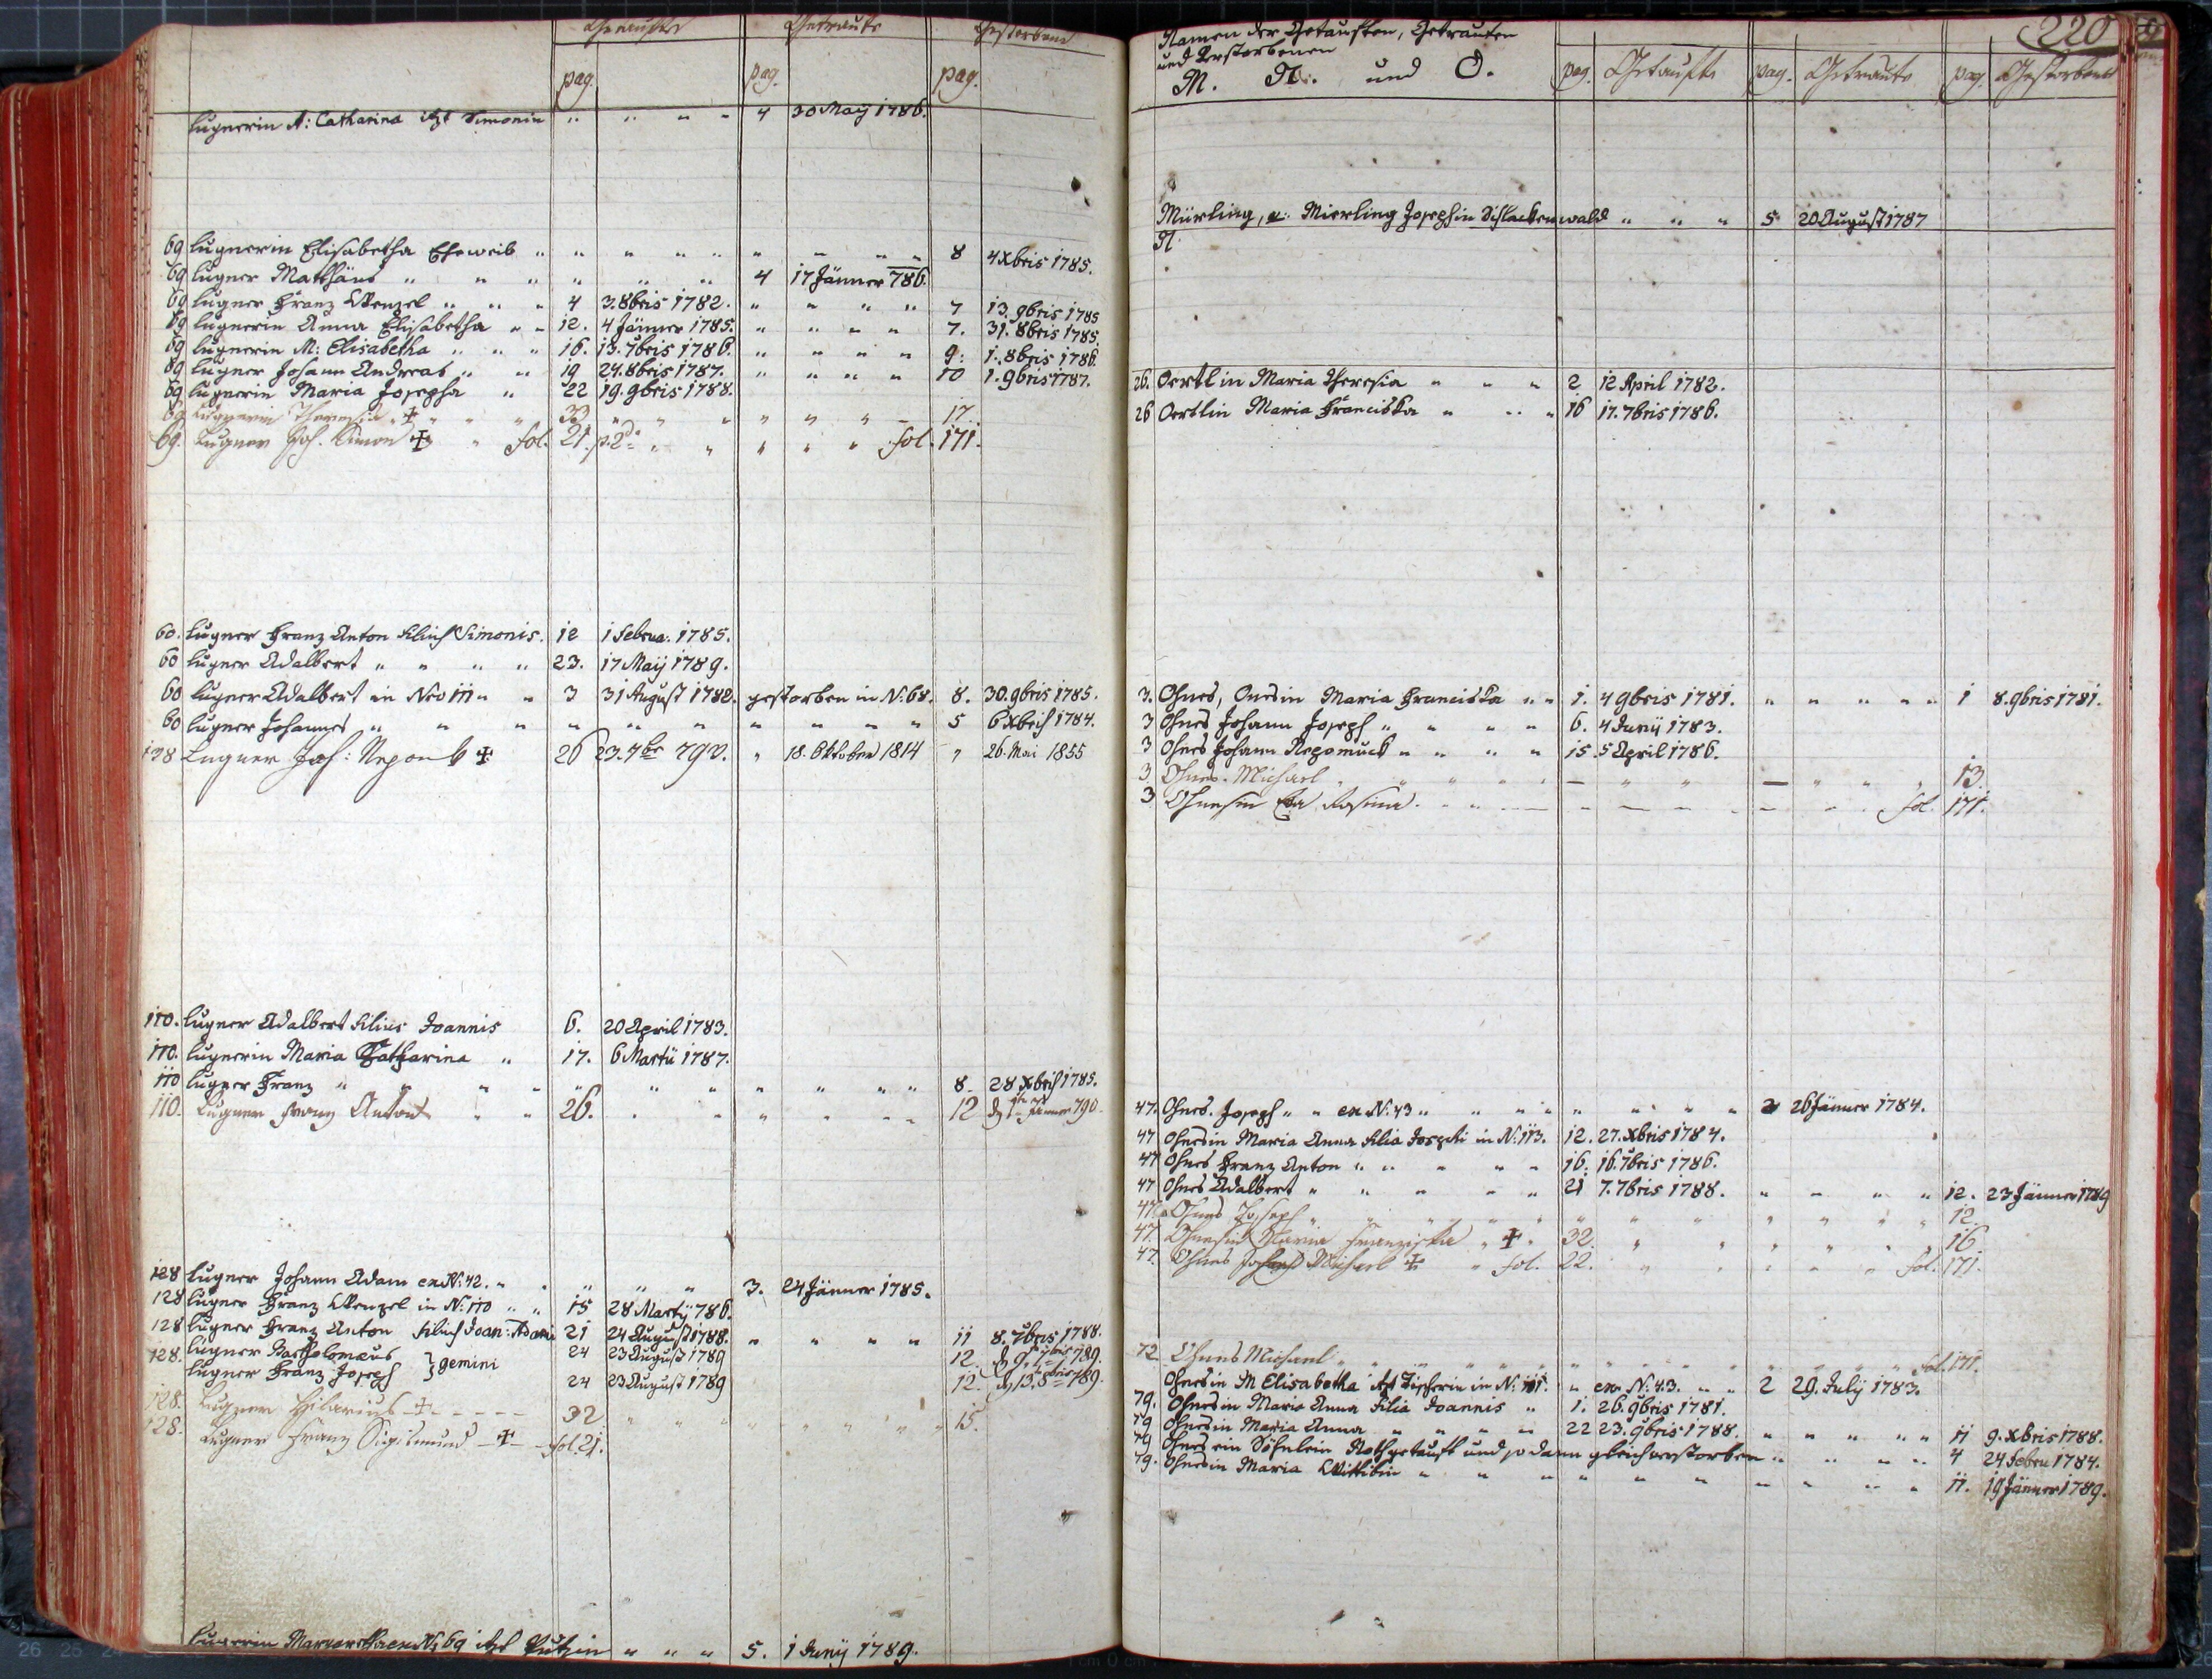 Getaufte Getraute Gestorbene
pag. pag. pag.
Lugnerin A: Catharina itzt Simonin " " " " 4 30 May 1786.
69 Lugnerin Elisabetha Eheweib " " " " " " " " 8 4 Xbris 1785.
69 Lugner Matthäus " " " " " " 4 17 Jänner 786.
69 Lugner Franz Wenzel " " " 4 3. 8bris 1782. " " " " 7 13. 9bris 1785
69 Lugnerin Anna Elisabetha " " 12. 4 Jänner 1785. " " " " 7. 31. 8bris 1785.
69 Lugnerin M: Elisabetha " " " 16. 13. 7bris 1786. " " " " 9: 1. 8bris 1786.
69 Lugner Johann Andreas " " 19 24. 8bris 1787. " " " " 10 1. 9bris 1787.
69 Lugnerin Maria Josepha " 22 19. 9bris 1788.
69 Lugnerin Theresia ✝ " " " 33 " " " " " " – 17.
69. Lugner Joh. Simon ✝ " fol. 21. p. 2da " " " " " fol. 171.
60. Lugner Franz Anton Filius Simonis. 12 1 Februa. 1785.
60 Lugner Adalbert " " " " 23. 17 Maÿ 1789.
60 Lugner Adalbert in Nro 111 " " 3 31 August 1782. gestorben in N: 68. 8. 30. 9bris 1785.
60 Lugner Johannes " " " " " " " " " " 5 6 Xbris 1784.
138 Lugner Joh: Nepomuk ✝ 26 23. 7br 790. " 18. Oktober 1814 " 26. Mai 1855
110. Lugner Adalbert Filius Joannis 6. 20 April 1783.
110. Lugnerin Maria Catharina " 17. 6 Martii 1787.
110 Lugner Franz " " " " " " " " " " " 8. 28 Xbris 1785.
110. Lugner Franz Anton " " 26. " " " " " " 12 d 1ten Jänner 790.
128 Lugner Johann Adam ex N: 42. " " " " " 3. 24 Jänner 1785.
128 Lugner Franz Wenzel in N: 110 " " 15 28 Martÿ 786.
128 Lugner Franz Anton Filius Joan: Adami 21 24 August 1788. " " " " 11 8. 7bris 1788.
128. Lugner Bartholomæus } gemini 24 23 August 1789 12. d 9. 7bris 789.
Lugner Franz Joseph 24 23 August 1789 12. d 13. 789.
128. Lugner Hilarius ✝ – – – – – 32 " " " " " " " " 15.
128. Lugner Franz Sigismund – ✝ – fol. 21.
Lugnerin Margaretha ex N: 69 itzt Putzin " " " 5. 1 Junÿ 1789.
220
Namen der Getauften, Getrauten
und Verstorbenen
M. N. und O. pag. Getaufte pag. Getraute pag. Gestorbene
Mürling, Mierling Joseph in Schlackenwald " " " 5 20 August 1787
N.
26. Oertlin Maria Theresia " " " 2 12 April 1782.
26 Oertlin Maria Franciska " " " 16 17. 7bris 1786.
3. Ohnes, Onesin Maria Franciska " " 1. 4 9bris 1781. " " " " " 1 8. 9bris 1781.
3 Ohnes Johann Joseph " " " " 6. 4 Junÿ 1783.
3 Ohnes Johann Nepomuck " " " " 15. 5 April 1786.
3 Ohnes Michael " " " " " – " " – " " " 13.
3 Ohnesin Eva Rosina. " " – – – – – – – " " fol. 171.
47. Ohnes. Joseph " " ex N: 43 " " " " " " " " 2 26 Jänner 1784.
47 Ohnesin Maria Anna Filia Josephi in N: 113. 12. 27. Xbris 1784.
47 Ohnes Franz Anton " " " " " 16. 16. 7bris 1786.
47 Ohnes Adalbert " " " " " 21 7. 7bris 1788. " " " " 12. 23 Jänner 1789
47. Ohnes Joseph " " " " " " " " " " " " 12.
47. Ohnesin Maria Franziska " ✝ " 32. " " " " " 16
47. Ohnes Michael ✝ " fol. 22. " " " " fol. 171.
72 Ohnes Michael " " " " " " " " " " " " fol. 171.
Ohnesin M Elisabetha itzt in N: 101. " ex N: 43. " " 2 29. Julÿ 1783.
79. Ohnesin Maria Anna Filia Joannis " 1. 26. 9bris 1781.
79 Ohnesin Maria Anna " " " " " 22 23. 9bris 1788. " " " " " 11 9. Xbris 1788.
79 Ohnes ein Söhnlein Nothgetauft und so dann gleich verstorben " " " " 4 24 Febru 1784.
79. Ohnesin Maria Wittibin " " " " " " " " " " 11. 19 Jänner 1789.